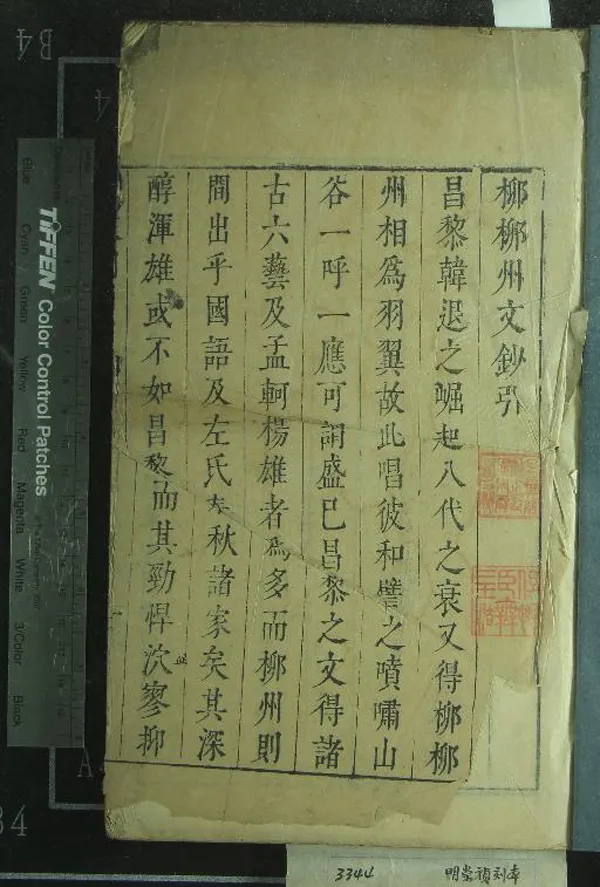 柳柳州文鈔引
昌黎韓退之崛起八代之衰又得柳柳
州相爲羽翼故此唱彼和譬之噴嘯山
谷一呼一應可謂盛已昌黎之文得諸
古六藝及孟軻楊雄者爲多而柳州則
間出乎國語及左氏春秋諸家矣其深
醇渾雄或不如昌黎而其勁悍泬寥抑
B4
4
TIFFEN Color Control Patches
Blue
Cyan
Green
Yellow
Red
Magenta
White
3/Color
Black
A
34
3344
明崇禎刻本